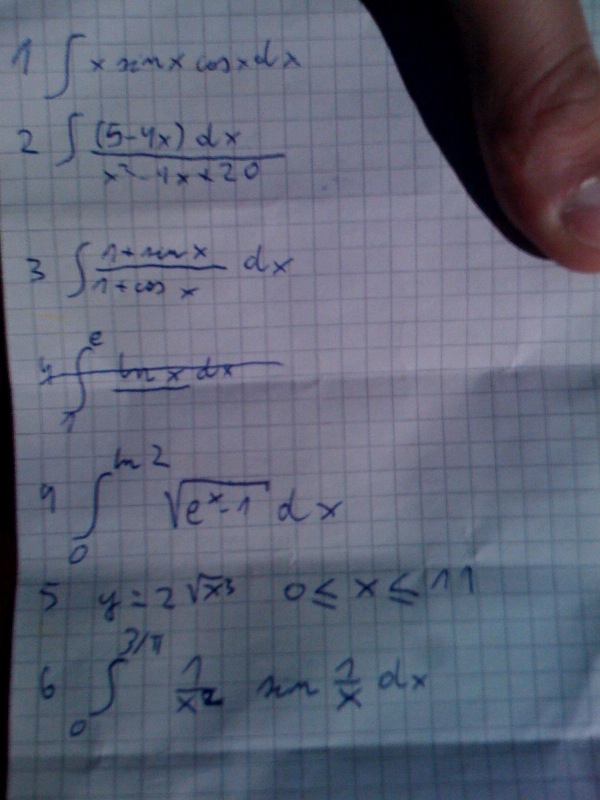 1 ∫ x sin x cos x dx
2 ∫ (5-4x) dx / x²-4x+20
3 ∫ 1+sin x / 1+cos x dx
4 ∫₁ᵉ ln x dx
4 ∫₀^{ln 2} √(eˣ-1) dx
5 y = 2√x³ 0 ≤ x ≤ 11
6 ∫₀^{3/π} 1/x² sin 1/x dx